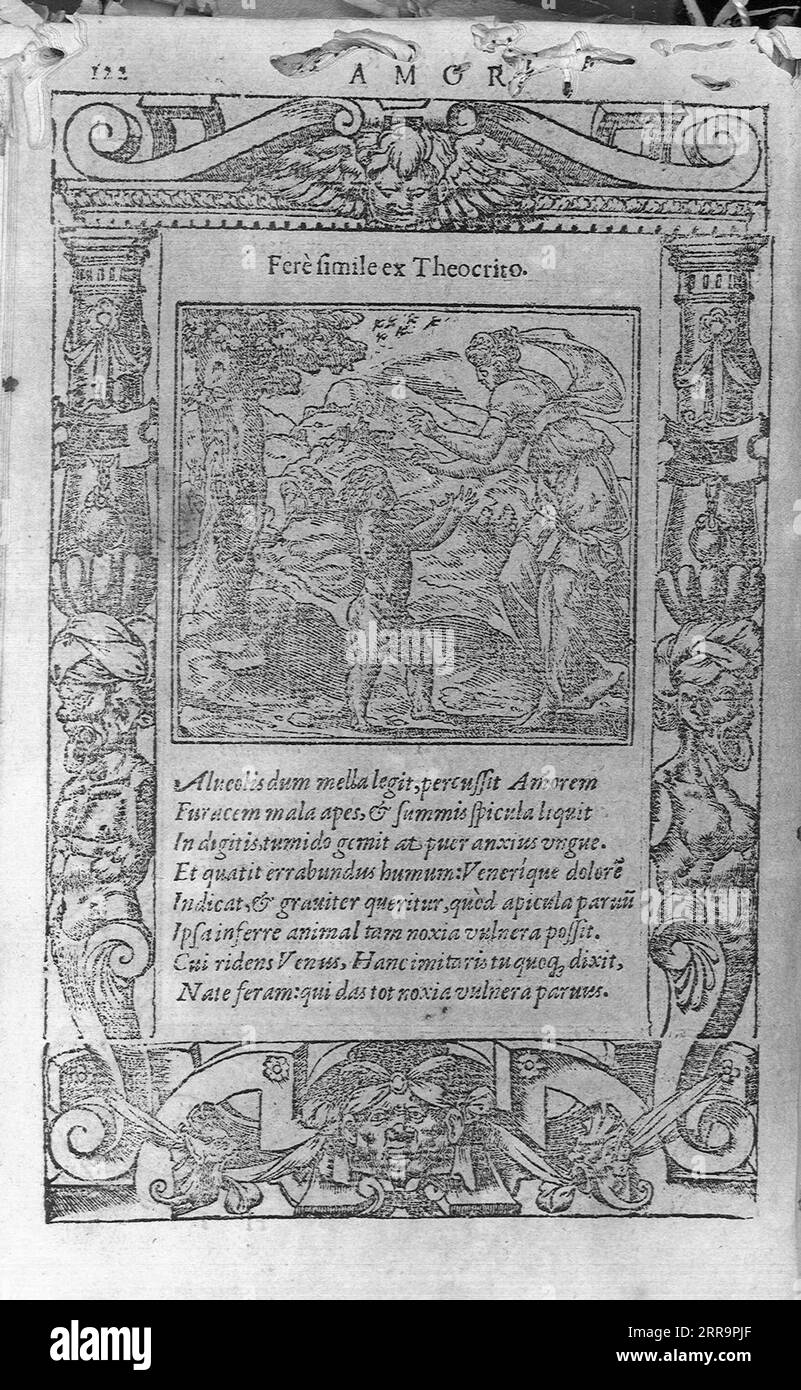 122
AMOR
Ferè simile ex Theocrito.
Alueolis dum mella legit, percussit Amorem
Furacem mala apes, & summis spicula liquit
In digitis, tumido gemit at puer anxius vngue.
Et quatit errabundus humum: Veneríque dolorẽ
Indicat, & grauiter queritur, quòd apicula paruũ
Ipsa inferre animal tam noxia vulnera possit.
Cui ridens Venus, Hanc imitaris tu quoq, dixit,
Nate feram: qui das tot noxia vulnera paruus.
alamy
Image ID: RR9PJF
www.alamy.com